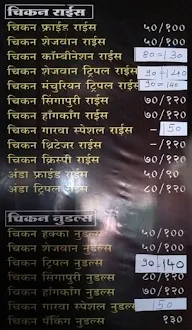 चिकन राईस
चिकन फ्राईड राईस ५०/१००
चिकन शेजवान राईस ५०/१००
चिकन कॉम्बीनेशन राईस 80=130
चिकन शेजवान ट्रिपल राईस 90=140
चिकन मंचुरियन ट्रिपल राईस 90=140
चिकन सिंगापुरी राईस ७०/१२०
चिकन हाँगकाँग राईस ७०/१२०
चिकन गारवा स्पेशल राईस -150
चिकन थ्रिटेजर राईस -/१२०
चिकन क्रिस्पी राईस ७०/१२०
अंडा फ्राईड राईस ४०/
अंडा ट्रिपल राईस ८०/१२०
चिकन नुडल्स
चिकन हक्का नुडल्स ५०/१००
चिकन शेजवान नुडल्स ५०/१००
चिकन ट्रिपल नुडल्स 90-140
चिकन सिंगापुरी नुडल्स ८०/१२०
चिकन हाँगकाँग नुडल्स ७०/१२०
चिकन गारवा स्पेशल नुडल्स 150
चिकन पॅकिंग नुडल्स १३०